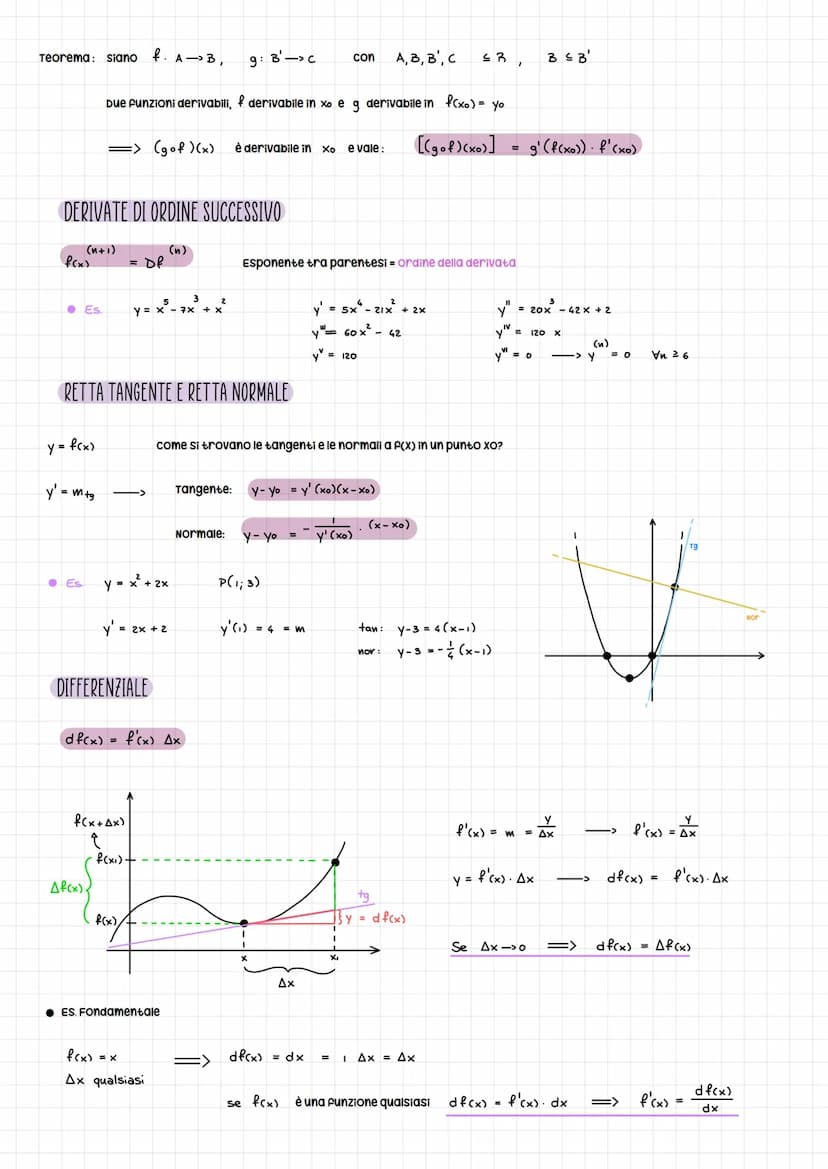 Teorema: siano f: A → B, g: B' → C con A, B, B', C ⊆ R, B ⊆ B'
Due funzioni derivabili, f derivabile in x₀ e g derivabile in f(x₀) = y₀
⟹ (g∘f)(x) è derivabile in x₀ e vale: [(g∘f)(x₀)] = g'(f(x₀)) · f'(x₀)
DERIVATE DI ORDINE SUCCESSIVO
f(x)⁽ⁿ⁺¹⁾ = Df⁽ⁿ⁾ Esponente tra parentesi = ordine della derivata
• Es. y = x⁵ - 7x³ + x² y' = 5x⁴ - 21x² + 2x y'' = 20x³ - 42x + 2
y''' = 60x² - 42 yᴵⱽ = 120 x
yⱽ = 120 yⱽᴵ = 0 → y⁽ⁿ⁾ = 0 ∀n ≥ 6
RETTA TANGENTE E RETTA NORMALE
y = f(x) come si trovano le tangenti e le normali a f(x) in un punto x0?
y' = m tg → Tangente: y - y₀ = y'(x₀)(x - x₀)
Normale: y - y₀ = - 1/y'(x₀) · (x - x₀)
tg
nor
• Es. y = x² + 2x P(1; 3)
y' = 2x + 2 y'(1) = 4 = m tan: y - 3 = 4(x - 1)
nor: y - 3 = - 1/4 (x - 1)
DIFFERENZIALE
df(x) = f'(x) Δx
f(x + Δx)
f(x₁)
Δf(x)
f(x)
tg
y = df(x)
x x₁
Δx
f'(x) = m = y/Δx → f'(x) = y/Δx
y = f'(x) · Δx → df(x) = f'(x) · Δx
Se Δx → 0 ⟹ df(x) = Δf(x)
• Es. Fondamentale
f(x) = x ⟹ df(x) = dx = 1 Δx = Δx
Δx qualsiasi
se f(x) è una funzione qualsiasi df(x) = f'(x) · dx ⟹ f'(x) = df(x)/dx